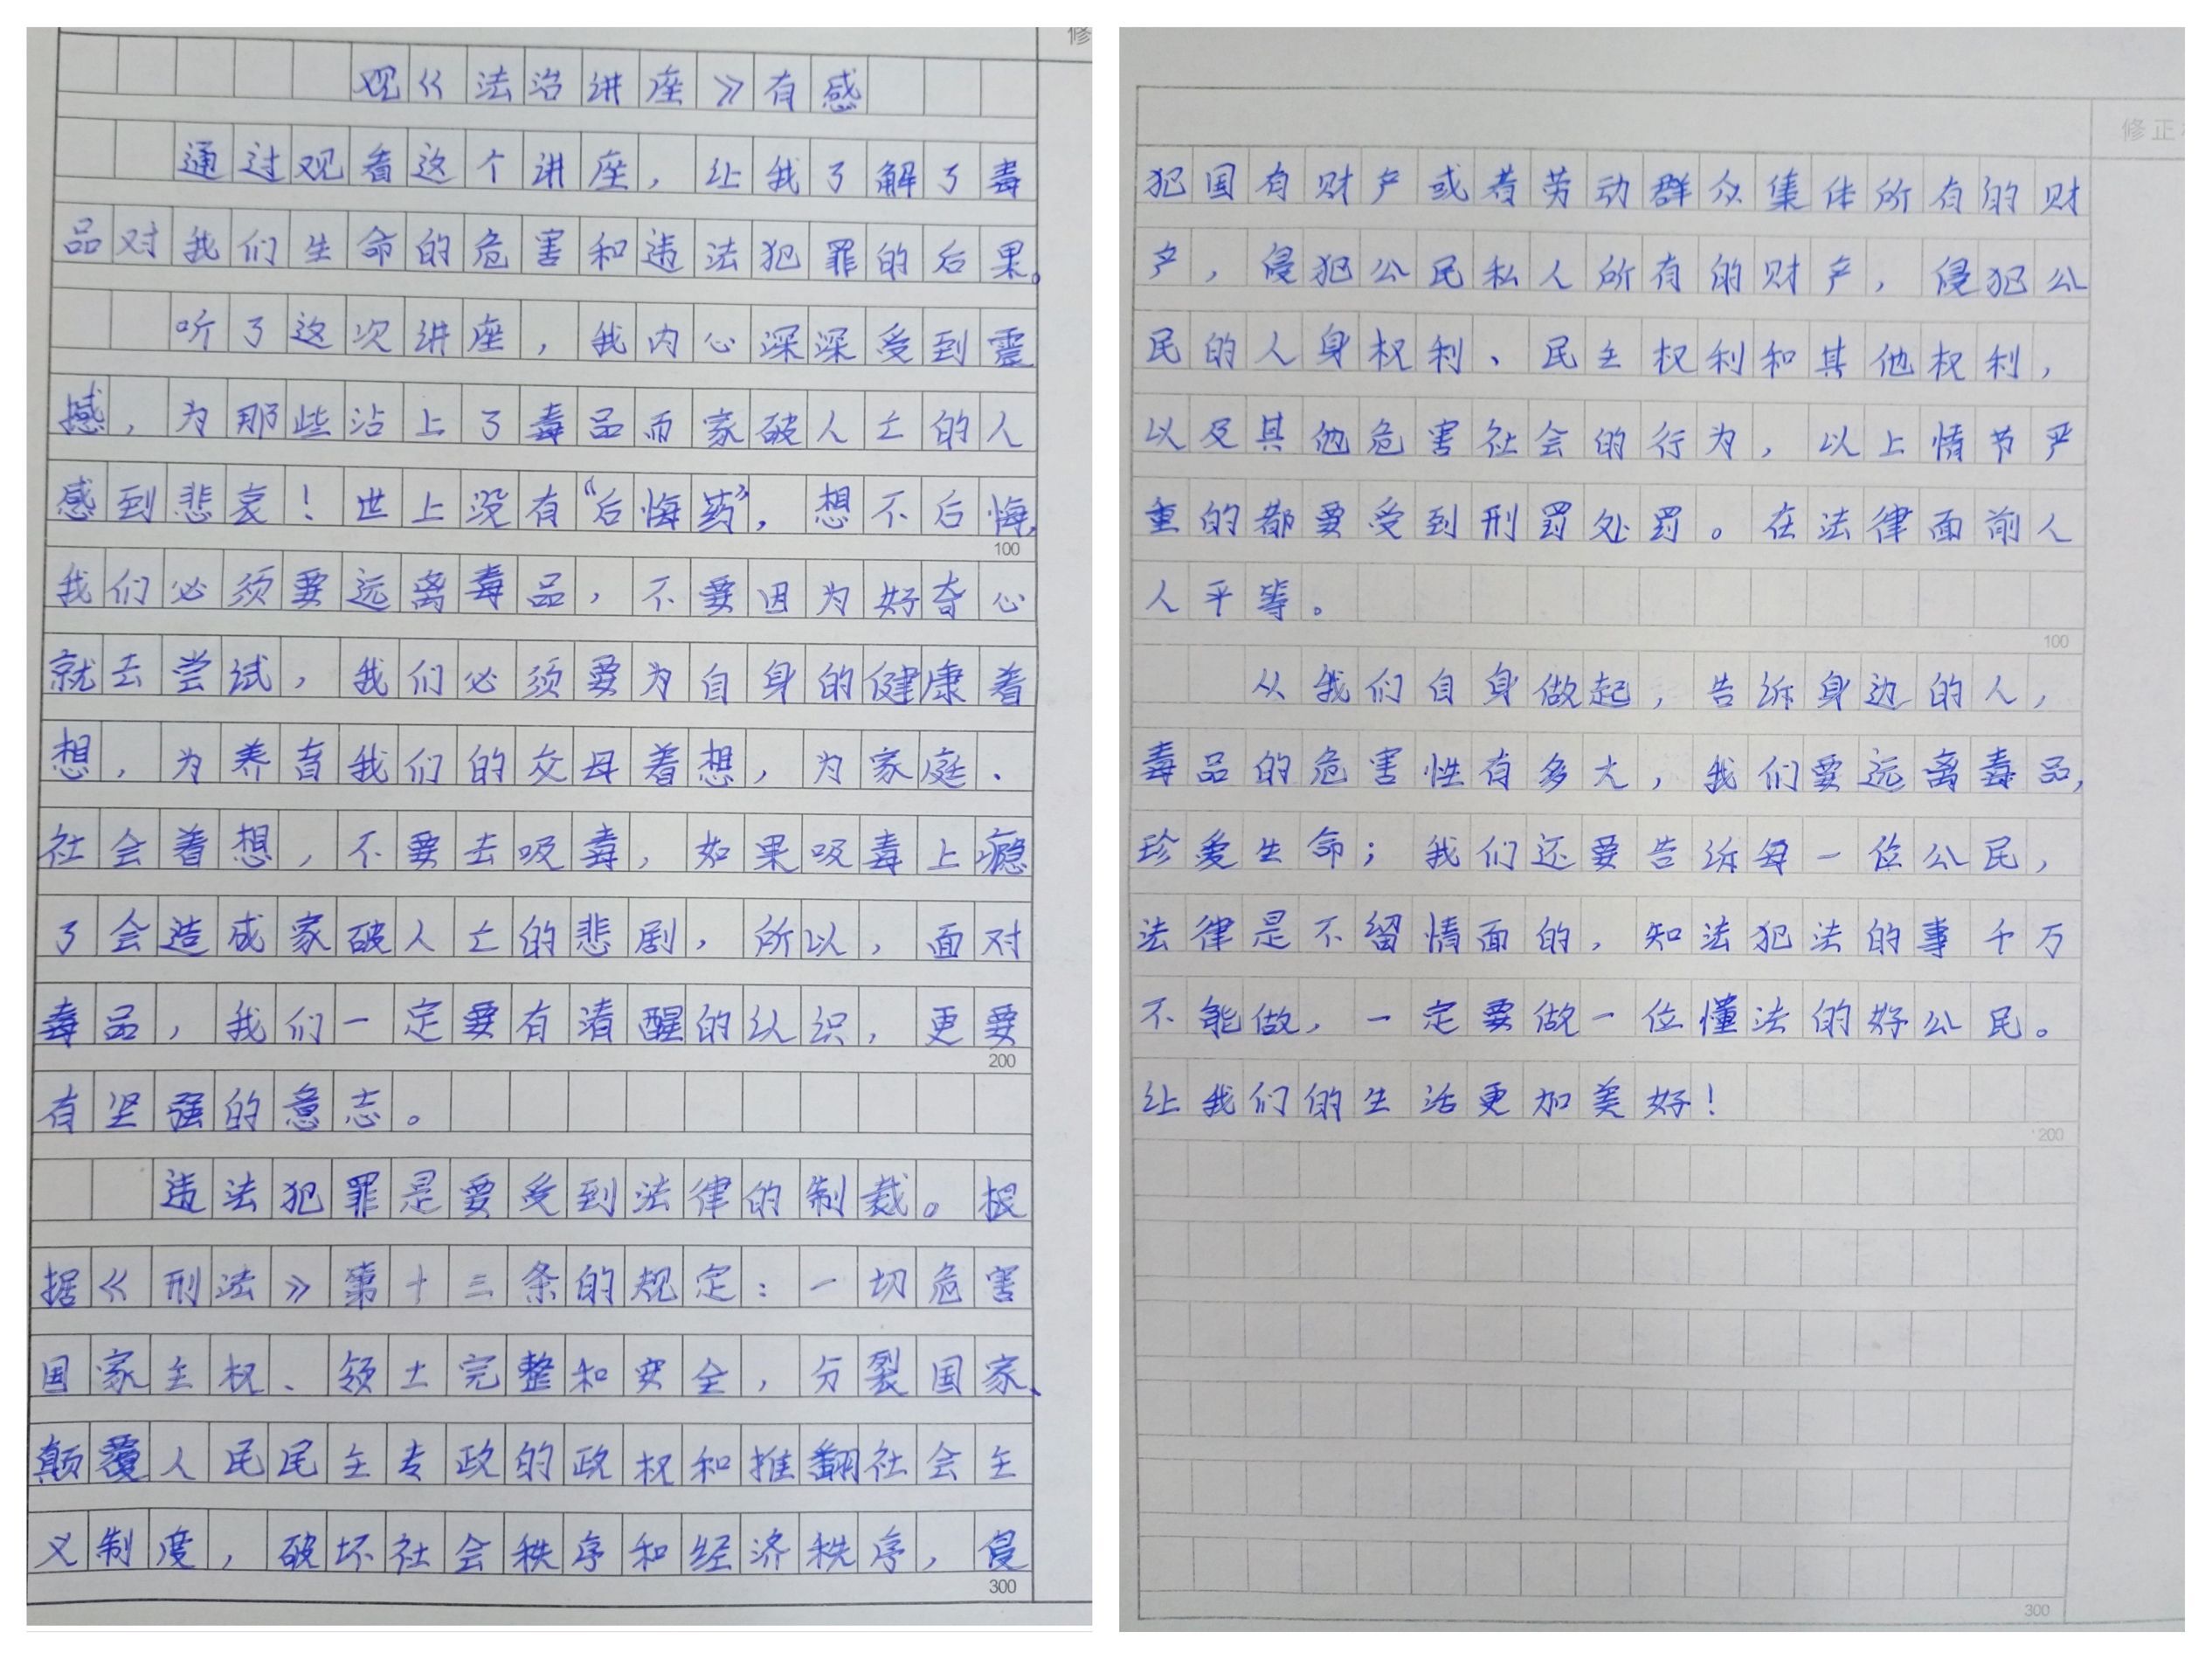 修
观《法治讲座》有感
通过观看这个讲座，让我了解了毒
品对我们生命的危害和违法犯罪的后果。
听了这次讲座，我内心深深受到震
撼，为那些沾上了毒品而家破人亡的人
感到悲哀！世上没有“后悔药”，想不后悔，
100
我们必须要远离毒品，不要因为好奇心
就去尝试，我们必须要为自身的健康着
想，为养育我们的父母着想，为家庭、
社会着想，不要去吸毒，如果吸毒上瘾
了会造成家破人亡的悲剧，所以，面对
毒品，我们一定要有清醒的认识，更要
200
有坚强的意志。
违法犯罪是要受到法律的制裁。根
据《刑法》第十三条的规定：一切危害
国家主权、领土完整和安全，分裂国家、
颠覆人民民主专政的政权和推翻社会主
义制度，破坏社会秩序和经济秩序，侵
300
修正
犯国有财产或者劳动群众集体所有的财
产，侵犯公民私人所有的财产，侵犯公
民的人身权利、民主权利和其他权利，
以及其他危害社会的行为，以上情节严
重的都要受到刑罚处罚。在法律面前人
人平等。
100
从我们自身做起，告诉身边的人，
毒品的危害性有多大，我们要远离毒品，
珍爱生命；我们还要告诉每一位公民，
法律是不留情面的，知法犯法的事千万
不能做，一定要做一位懂法的好公民。
让我们的生活更加美好！
200
300